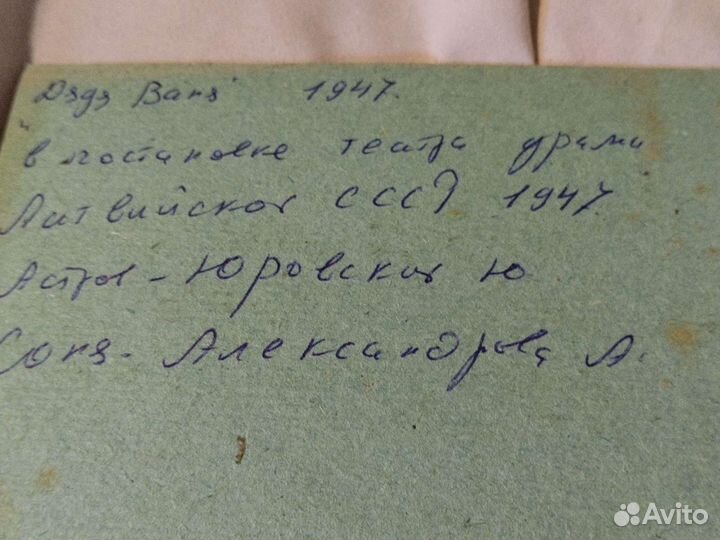 "Дядя Ваня" 1947.
в постановке театра драмы
Латвийской ССР 1947
Астров - Юровский Ю
Соня - Александрова А.
Avito